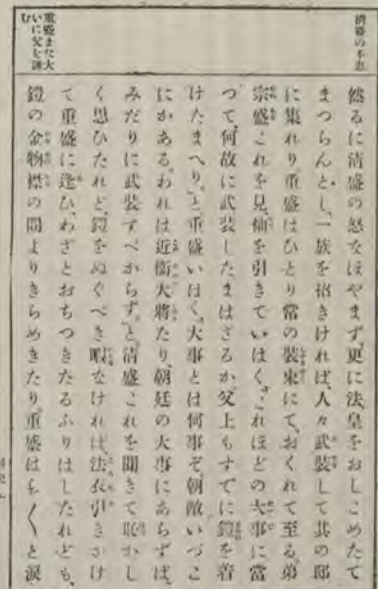 清盛の不忠
然るに清盛の怒なほやまず、更に法皇をおしこめたて
まつらんとし、一族を招きければ、人々武装して其の邸
に集れり。重盛はひとり常の装束にて、おくれて至る。弟
宗盛これを見、袖を引きていはく、「これほどの大事に當
つて、何故に武装したまはざるか。父上もすでに鎧を着
けたまへり」と。重盛いはく、「大事とは何事ぞ。朝敵いづこ
にかある。われは近衞大將たり。朝廷の大事にあらずば、
みだりに武装すべからず」と。清盛これを聞きて恥かし
く思ひたれど、鎧をぬぐべき暇なければ、法衣引きかけ
て重盛に逢ひ、わざとおちつきたるふりはしたれども、
鎧の金物襟の間よりきらめきたり。重盛はら〳〵と涙
重盛また大
いに父を諫
む